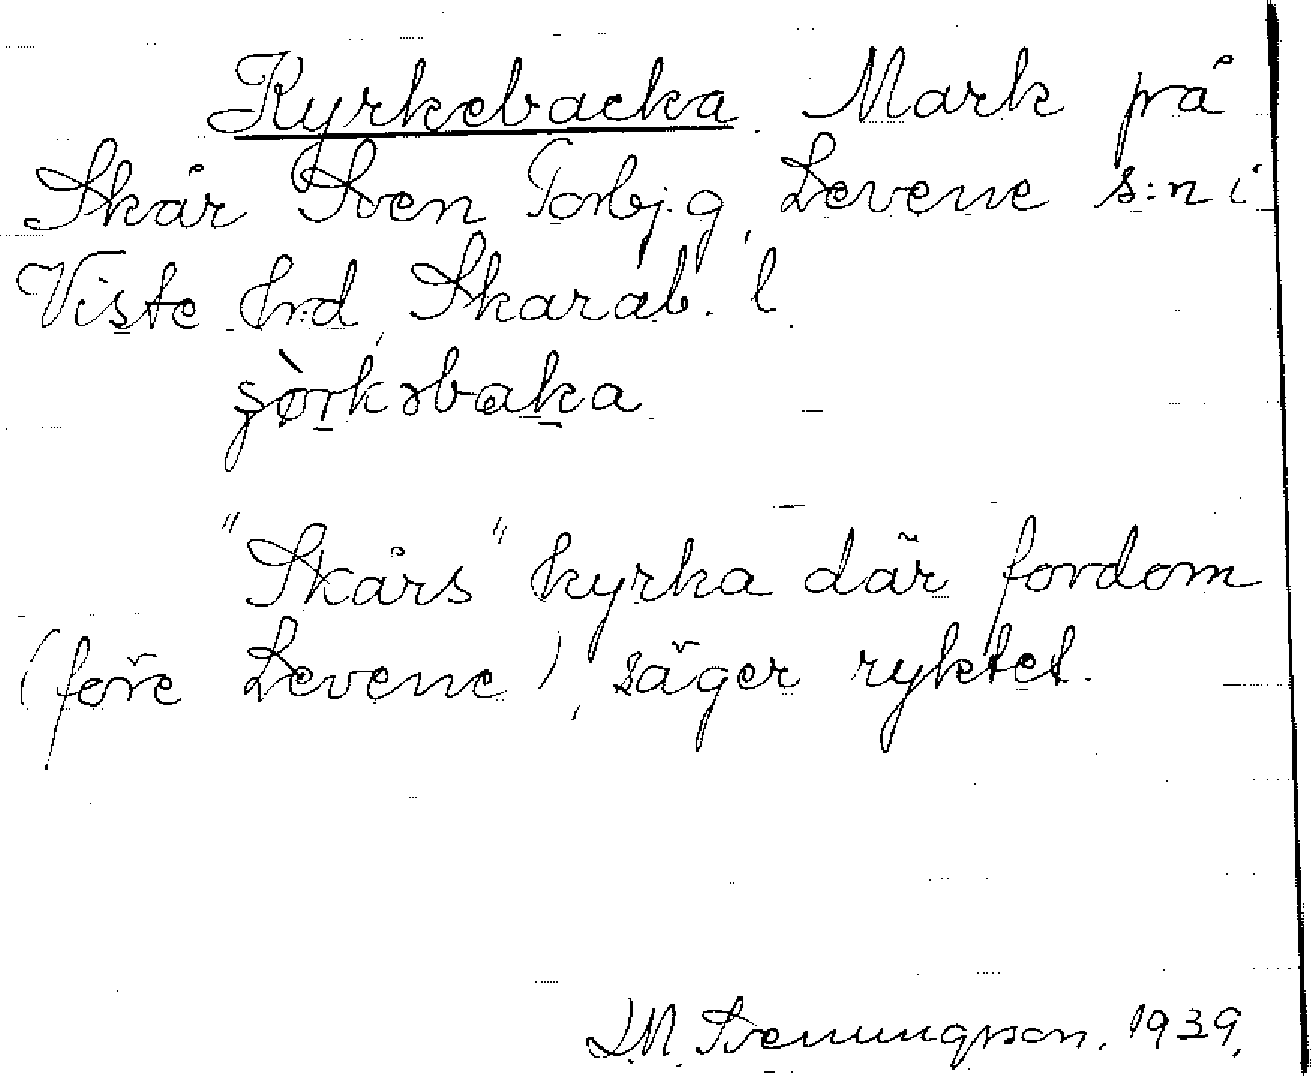 Kyrkebacka. Mark på
Skår Sven Torbj:g, Levene s:n i
Viste hrd, Skarab. l.
"Skårs" kyrka där fordom
(före Levene), säger ryktet.
1939.